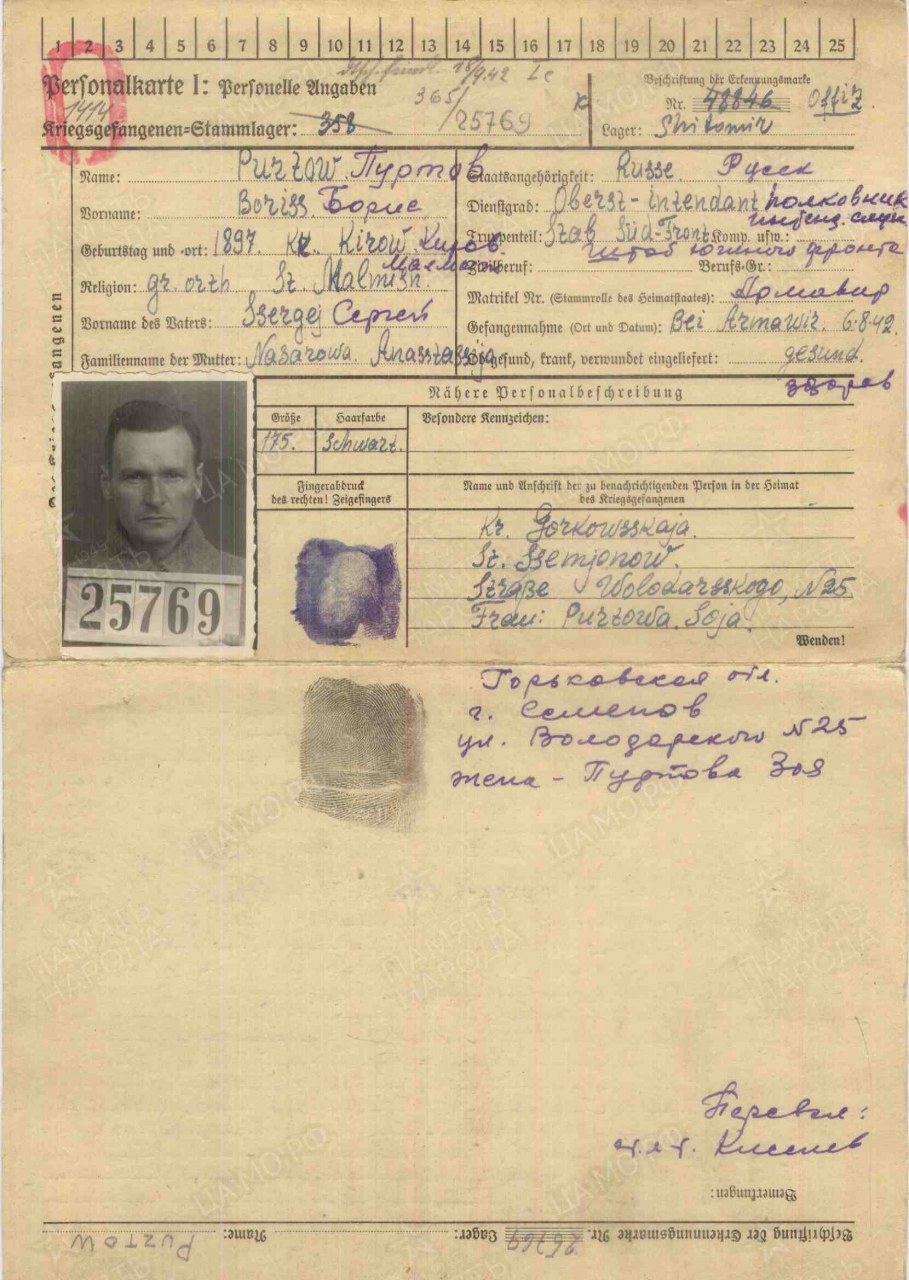 1 2 3 4 5 6 7 8 9 10 11 12 13 14 15 16 17 18 19 20 21 22 23 24 25
18/9.42
Personalkarte I: Personelle Angaben
Beschriftung der Erkennungsmarke
1414
365/25769
Nr. 48846 Offiz.
Kriegsgefangenen=Stammlager: 358
Lager: Shitomir
Name: Purtow Пуртов
Staatsangehörigkeit: Russe. Русск
Vorname: Boriss. Борис
Dienstgrad: Oberst-intendant полковник
Geburtstag und -ort: 1897. Kr. Kirow. Киров
Truppenteil: Stab Süd-Front Komp. usw.:
штаб южного фронта
Religion: gr. orth St. Malmish.
Zivilberuf: Berufs-Gr.:
Matrikel Nr. (Stammrolle des Heimatstaates): Армавир
Vorname des Vaters: Ssergej Сергей
Gefangennahme (Ort und Datum): Bei Armawir. 6.8.42.
Familienname der Mutter: Nasarowa. Anasstassija
Ob gesund, krank, verwundet eingeliefert: gesund.
здоров
Nähere Personalbeschreibung
Größe Haarfarbe Besondere Kennzeichen:
175. Schwarz.
Fingerabdruck
des rechten! Zeigefingers
Name und Anschrift der zu benachrichtigenden Person in der Heimat
des Kriegsgefangenen
Kr. Gorkowsskaja.
St. Ssemjonow.
Straße Wolodarsskogo, N25
Frau: Purtowa. Soja.
25769
Wenden!
Горьковская обл.
г. Семенов
ул. Володарского N25
жена - Пуртова Зоя
Перевел:
Киселев
Bemerkungen:
Beschriftung der Erkennungsmarke Nr. 25769 Lager: Name: Purtow
ЦАМО.РФ
ПАМЯТЬ
НАРОДА